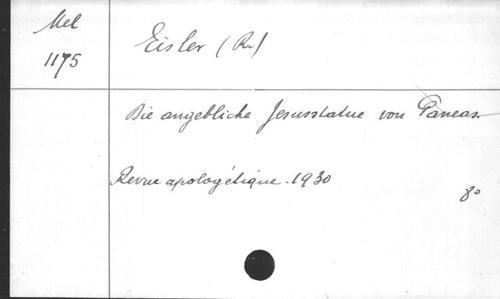 Mel
1175
Eisler (R.)
Die angebliche Jesusstatue von Paneas.
Revue apologétique. 1930
8°